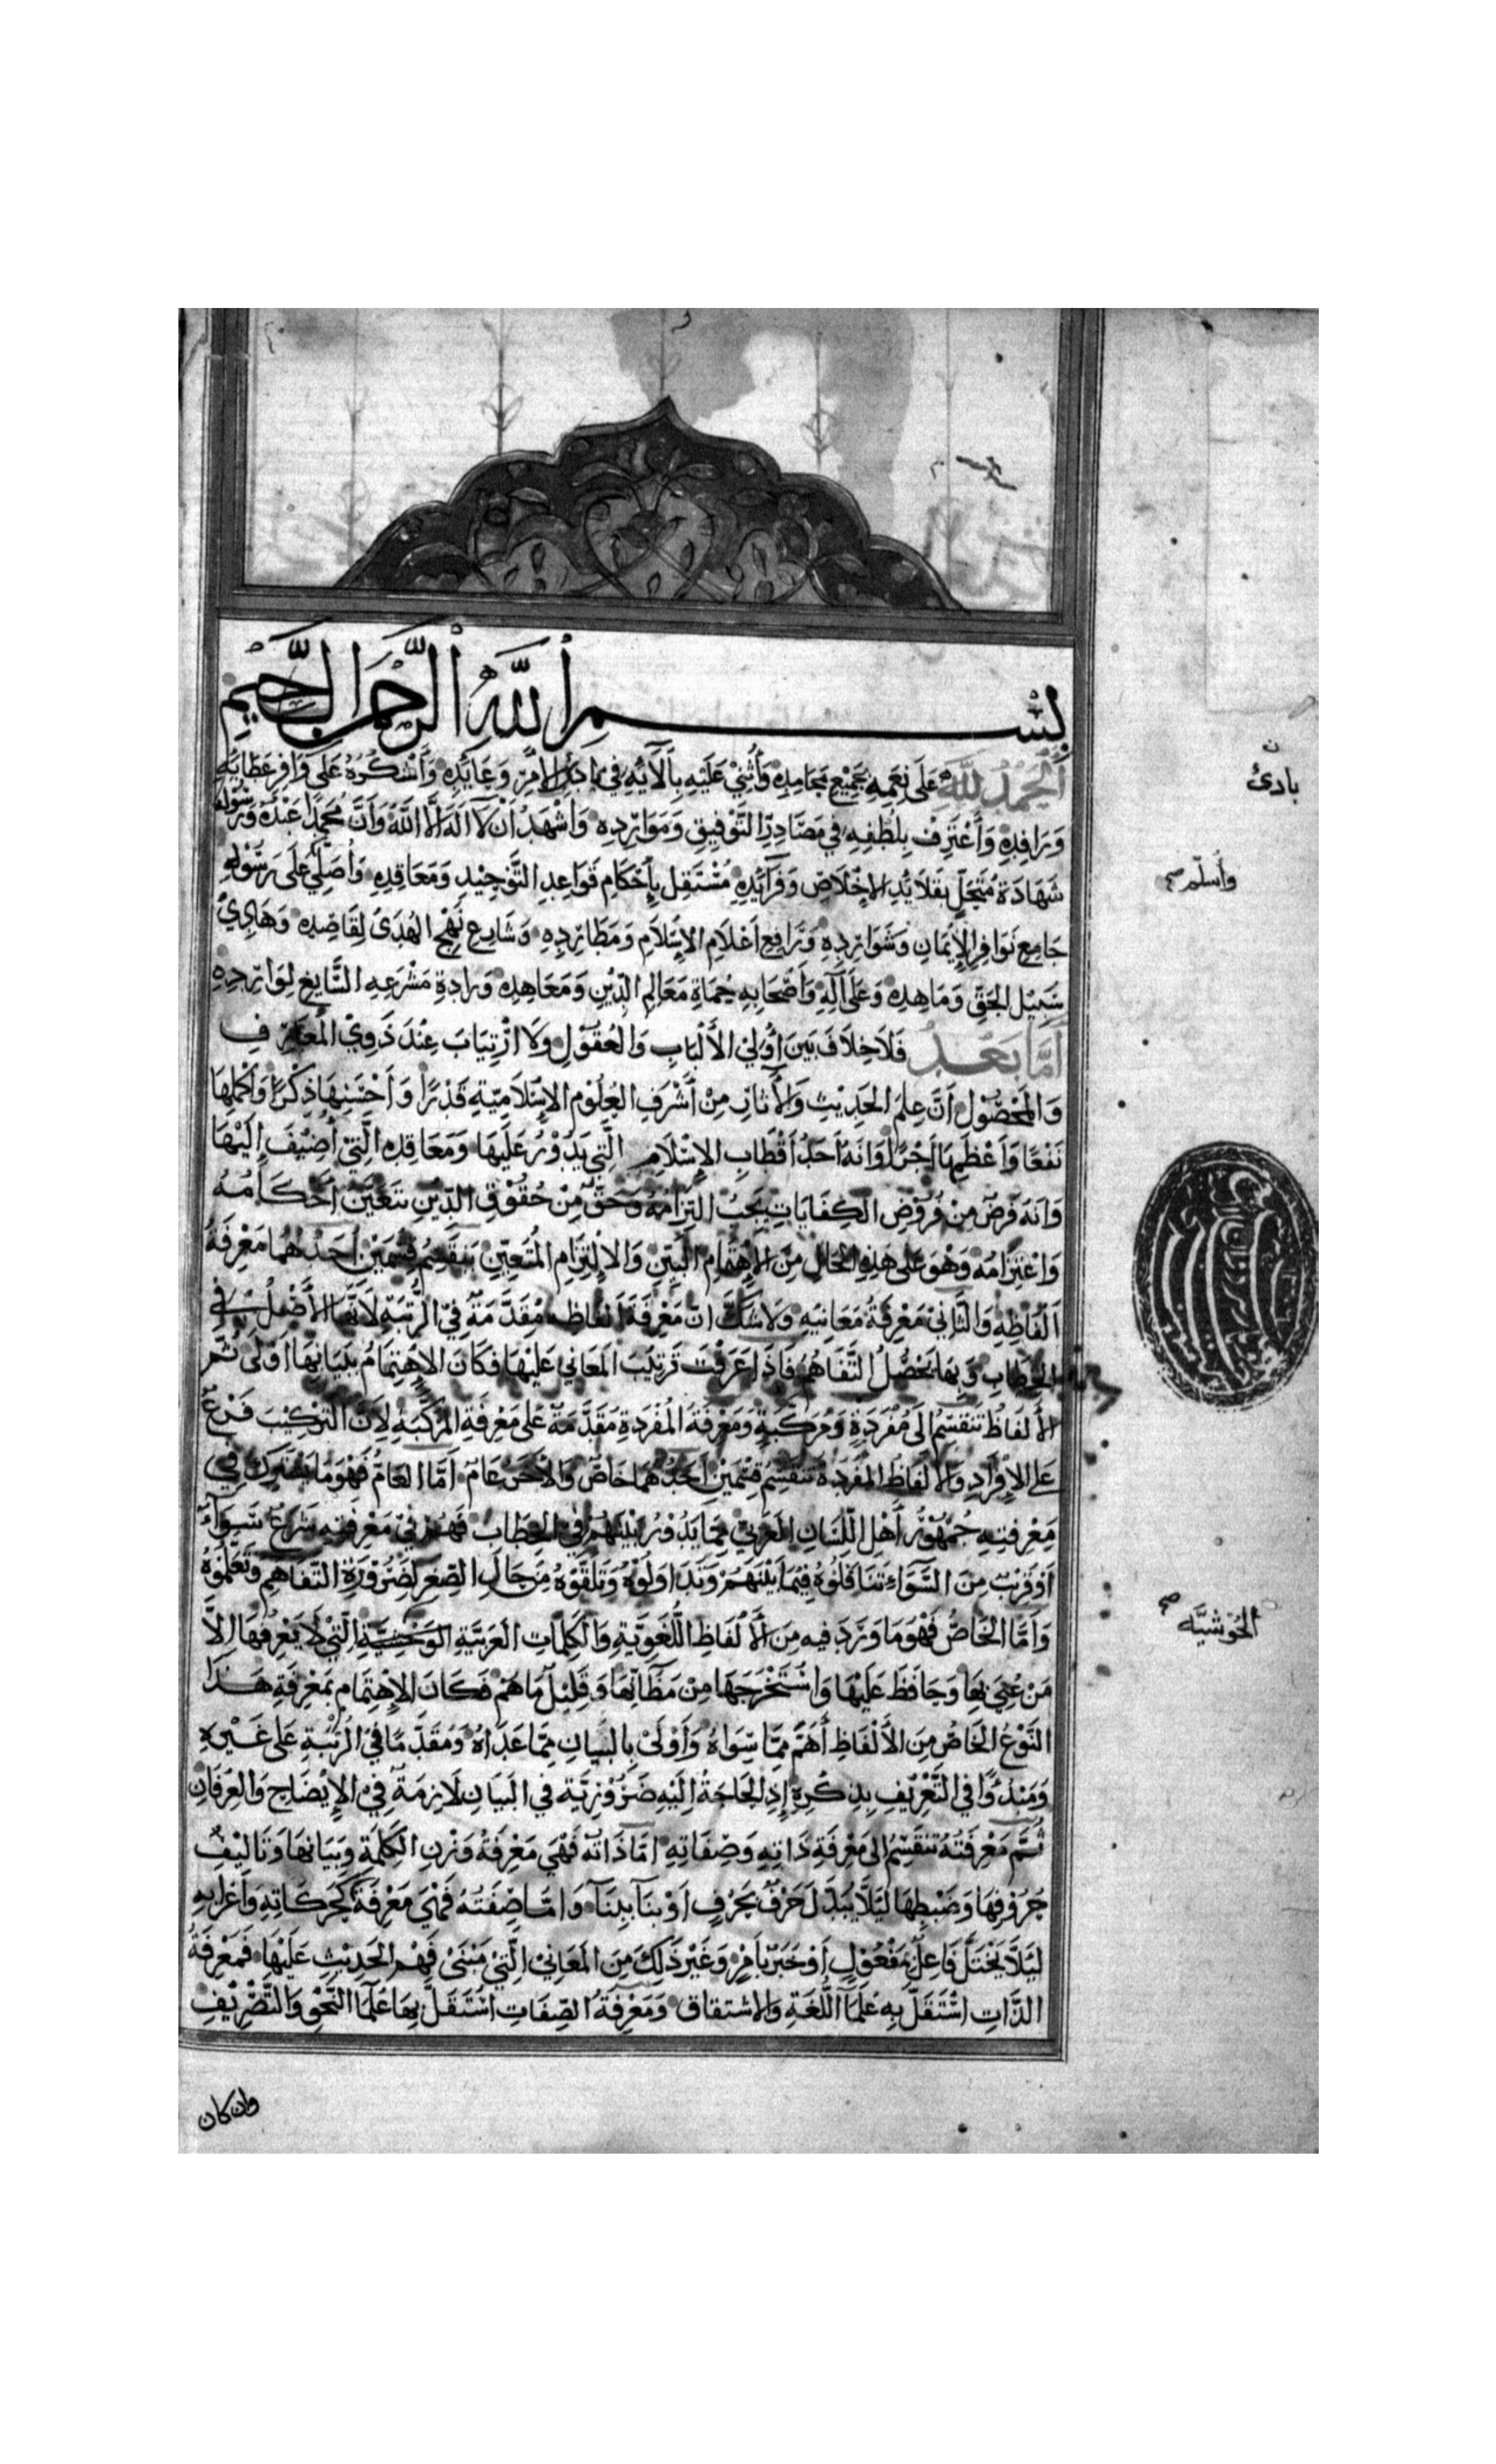 بِسْمِ اللَّهِ الرَّحْمَنِ الرَّحِيمِ
اَلْحَمْدُ لِلَّهِ عَلَى نِعَمِهِ بِجَمِيْعِ مَحَامِدِهِ وَأُثْنِيْ عَلَيْهِ بِآلَآئِهِ فِي بَادِئِ الأَمْرِ وَعَائِدِهِ وَأَشْكُرُهُ عَلَى وَافِرِ عَطَائِهِ
وَرَافِدِهِ وَأَعْتَرِفُ بِلُطْفِهِ فِي مَصَادِرِ التَّوْفِيقِ وَمَوَارِدِهِ وَأَشْهَدُ أَنْ لَا اَلَهَ اِلَّا اللَّهُ وَأَنَّ مُحَمَّدًا عَبْدُهُ وَرَسُوْلُهُ
شَهَادَةَ مُتَحَلٍّ بِقَلَائِدِ الإِخْلَاصِ وَفَرَآئِدِهِ مُسْتَقِلٍ بِإِحْكَامِ قَوَاعِدِ التَّوْحِيْدِ وَمَعَاقِدِهِ وَأُصَلِّيْ عَلَى رَسُوْلِهِ
جَامِعِ نَوَافِرِ الإِيْمَانِ وَشَوَارِدِهِ وَرَافِعِ أَعْلَامِ الإِسْلَامِ وَمَطَارِدِهِ وَشَارِعِ نَهْجِ الهُدَىْ لِقَاصِدِهِ وَهَادِيْ
سَبِيْلِ الحَقِّ وَمَاهِدِهِ وَعَلَى آلِهِ وَأَصْحَابِهِ حُمَاةِ مَعَالِمِ الدِّيْنِ وَمَعَاهِدِهِ وَرَادَةِ مَشْرَعِهِ السَّايِغِ لِوَارِدِهِ
أَمَّا بَعْدُ فَلَا خِلَافَ بَيْنَ أُوْلِيْ الأَلْبَابِ وَالعُقُوْلِ وَلَا ارْتِيَابَ عِنْدَ ذَوِيْ المَعَارِفِ
وَالمَحْصُوْلِ أَنَّ عِلْمَ الحَدِيْثِ وَالأَثَارِ مِنْ أَشْرَفِ العُلُوْمِ الإِسْلَامِيَّةِ قَدْرًا وَأَحْسَنِهَا ذِكْرًا وَأَكْمَلِهَا
نَفْعًا وَأَعْظَمِهَا أَجْرًا وَانَهُ أَحَدُ أَقْطَابِ الإِسْلَامِ الَّتِي يَدُوْرُ عَلَيْهَا وَمَعَاقِدِهِ الَّتِيْ أُضِيْفَ إِلَيْهَا
وَانَهُ فَرْضٌ مِنْ فُرُوْضِ الكِفَايَاتِ يَجِبُ التِزَامُهُ وَحَقٌّ مِنْ حُقُوْقِ الدِّيْنِ يَتَعَيَّنُ أَحْكَامُهُ
وَاعْتِزَامُهُ وَهْوَ عَلَى هَذِهِ الحَالِ مِنَ الإِهْتِمَامِ البَيِّنِ وَالإِلْتِزَامِ المُتَعَيِّنِ يَنْقَسِمُ قِسْمَيْنِ أَحَدُهُمَا مَعْرِفَةُ
أَلْفَاظِهِ وَالثَّانِيْ مَعْرِفَةُ مَعَانِيْهِ وَلَا شَكَّ انَّ مَعْرِفَةَ أَلْفَاظِهِ مُقَدَّمَةٌ فِيْ الرُّتْبَةِ لِأَنَّهَا الأَصْلُ فِي
الخِطَابِ وَبِهَا يَحْصُلُ التَّفَاهُمُ فَاذَا عَرَفْتَ تَرَتُّبَ المَعَانِي عَلَيْهَا فَكَانَ الإِهْتِمَامُ بِبَيَانِهَا أَوْلَى ثُمَّ
الأَلْفَاظُ تَنْقَسِمُ إِلَى مُفْرَدَةٍ وَمُرَكَّبَةٍ وَمَعْرِفَةُ المُفْرَدَةِ مُقَدَّمَةٌ عَلَى مَعْرِفَةِ المُرَكَّبَةِ لِأَنَّ التَّرْكِيْبَ فَرْعٌ
عَلَى الإِفْرَادِ وَالأَلْفَاظُ المُفْرَدَةُ تَنْقَسِمُ قِسْمَيْنِ أَحَدُهُمَا خَاصٌّ وَالأَخَرُ عَامٌّ أَمَّا العَامُّ فَهُوَ مَا يَشْتَرِكُ فِي
مَعْرِفَتِهِ جُمْهُوْرُ أَهْلِ اللِّسَانِ العَرَبِيِّ مِمَّا يَدُوْرُ بَيْنَهُمْ فِي الخِطَابِ فَهُمْ فِيْ مَعْرِفَتِهِ شَرَعٌ سَوَآءٌ
أَوْ قَرِيْبٌ مِنَ السَّوَاءِ تَنَاقَلُوْهُ فِيْمَا بَيْنَهُمْ وَتَدَاوَلُوْهُ وَتَلَقَّوْهُ مِنْ حَالِ الصِّغَرِ لِضَرُوْرَةِ التَّفَاهِمِ وَتَعَلَّمُوْهُ
وَأَمَّا الخَاصُّ فَهْوَ مَا وَرَدَ فِيهِ مِنَ الأَلْفَاظِ اللُّغَوِيَّةِ وَالكَلِمَاتِ العَرَبِيَّةِ الوَحْشِيَّةِ الَّتِيْ لَا يَعْرِفُهَا اِلَّا
مَنْ عُنِيَ بِهَا وَحَافَظَ عَلَيْهَا وَاسْتَخْرَجَهَا مِنْ مَظَآنِّهَا وَقَلِيْلٌ مَا هُمْ فَكَانَ الإِهْتِمَامُ بِمَعْرِفَةِ هَذَا
النَّوْعِ الخَاصِّ مِنَ الأَلْفَاظِ أَهَمَّ مِمَّا سِّوَاهُ وَأَوْلَىْ بِالبَيَانِ مِمَّا عَدَاهُ وَمُقَدَّمًا فِيْ الرُّتْبَةِ عَلَى غَيْرِهِ
وَمَبْدُوًّا فِي التَّعْرِيْفِ بِذِكْرِهِ إِذِ الحَاجَةُ إِلَيْهِ ضَرُوْرِيَّة فِي البَيَانِ لَازِمَةٌ فِيْ الإِيْضَاحِ وَالعِرْفَانِ
ثُمَّ مَعْرِفَتُهُ تَنْقَسِمُ إِلَى مَعْرِفَةِ ذَاتِهِ وَصِفَاتِهِ امَّا ذَاتُهُ فَهْيَ مَعْرِفَةُ وَزْنِ الكَلِمَةِ وَبَيَانِهَا وَتَالِيْفُ
حُرُوْفِهَا وَضَبْطِهَا لِيَلَّا يُبَدَّلَ حَرْفٌ بِحَرْفٍ اَوْ بِنَآ بِبِنَآ وَامَّا صِفَتُهُ فَهْيَ مَعْرِفَةُ حَرَكَاتِهِ وَأَعْرَابِهِ
لِيَلَّا يَخْتَلَّ فَاعِلٌ بِمَفْعُوْلٍ أَوْ خَبَرٌ بِأَمْرٍ وَغَيْرُ ذَلِكَ مِنَ المَعَانِيْ الَّتِيْ مَبْنَىْ فَهْمِ الحَدِيْثِ عَلَيْهَا فَمَعْرِفَةُ
الذَّاتِ اسْتَقَلَّ بِهِ عُلَمَآ اللُّغَةِ وَالاِشْتِقَاقِ وَمَعْرِفَةُ الصِّفَاتِ اسْتَقَلَّ بِهَا عُلَمَآ النَّحْوِ وَالتَّصْرِيْفِ
وان كان
ن
بادئ
وأُسلّم صح
الحُوْشيَّه صح